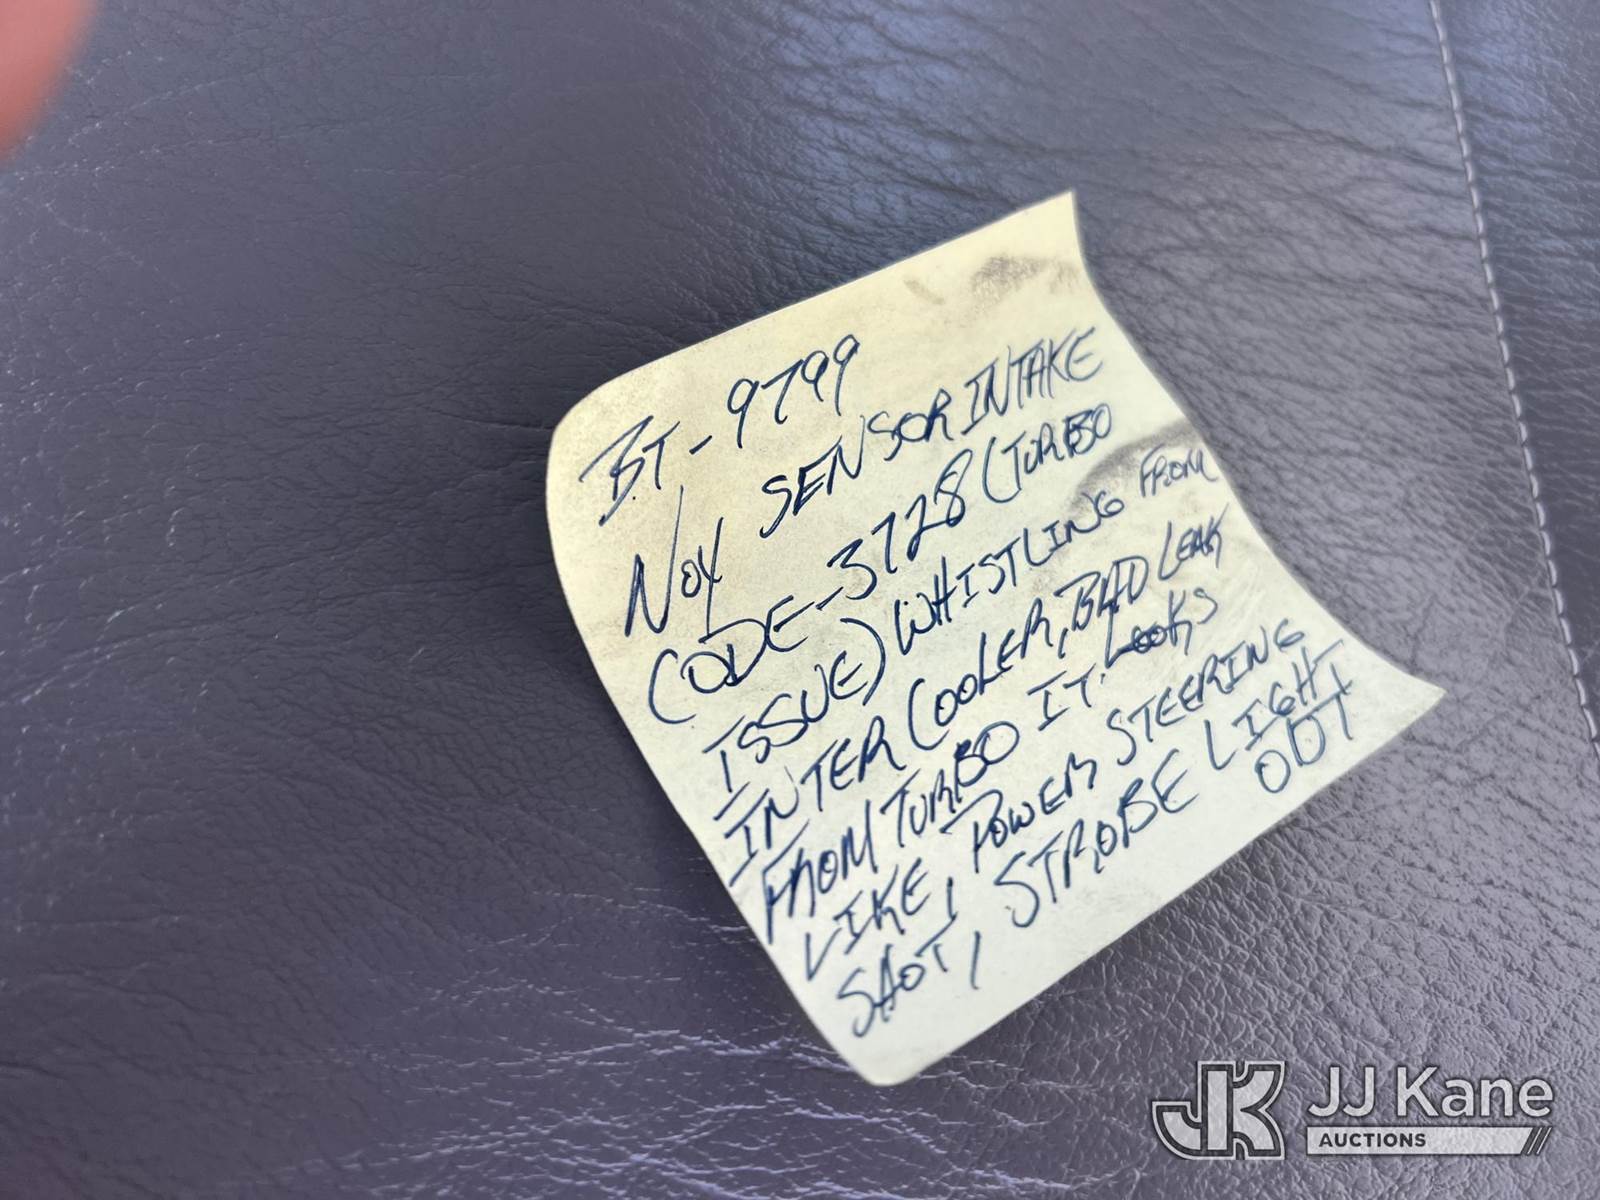 BT-9799
NOX SENSOR INTAKE
CODE-3728 (TURBO
ISSUE) WHISTLING FROM
INTER COOLER, BAD LEAK
FROM TURBO IT. LOOKS
LIKE, POWER STEERING
SHOT, STROBE LIGHT
OUT
JK JJ Kane
AUCTIONS